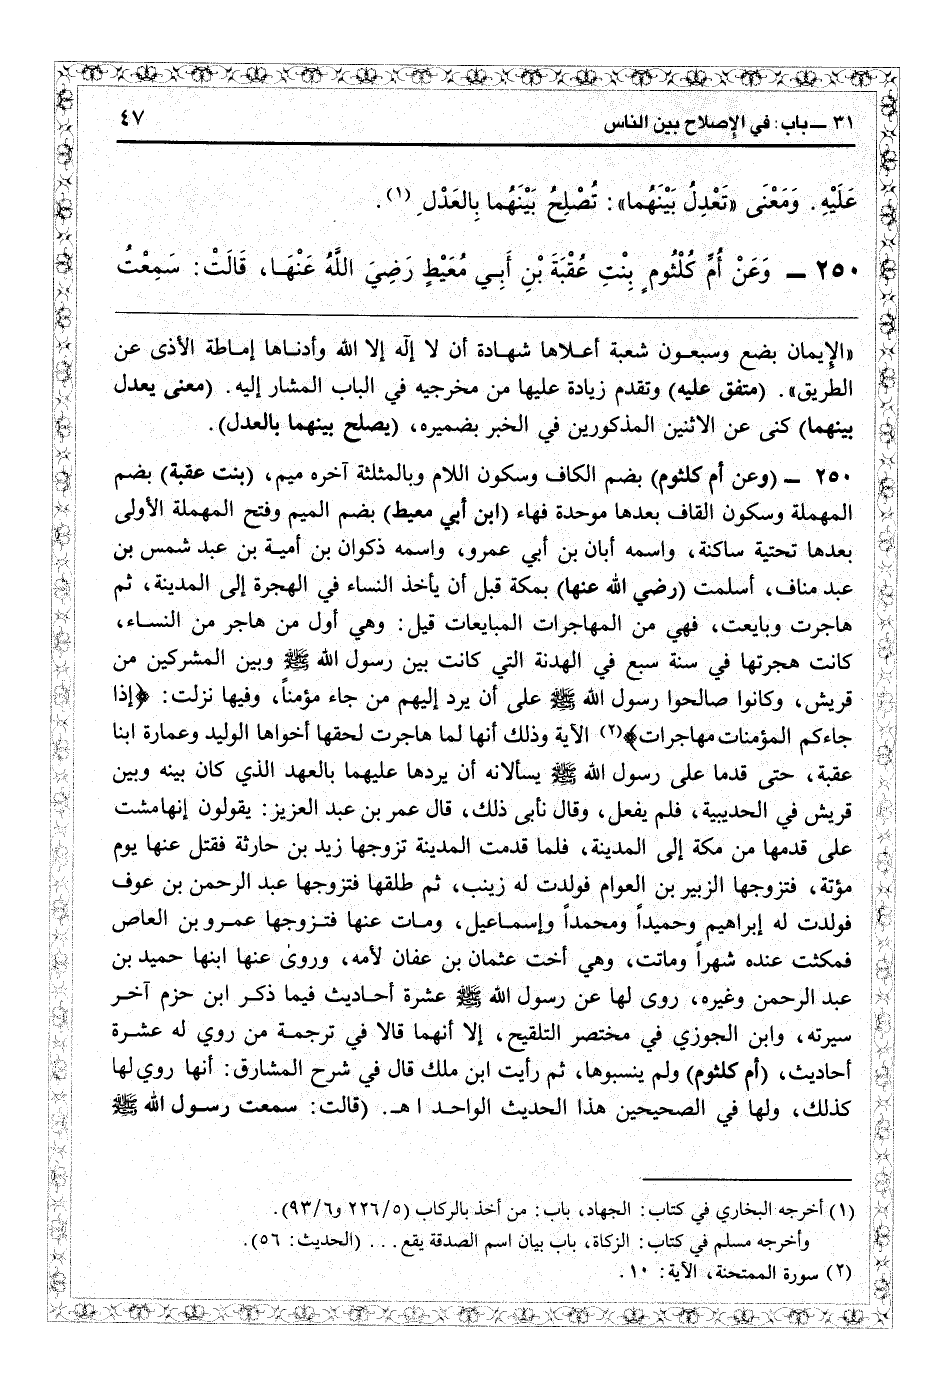 ٣١ ــ باب: في الإصلاح بين الناس ٤٧
عَلَيْهِ. وَمَعْنَى «تَعْدِلُ بَيْنَهُما»: تُصْلِحُ بَيْنَهُما بِالعَدْلِ (١).
٢٥٠ ــ وَعَنْ أُمِّ كُلْثُومٍ بِنْتِ عُقْبَةَ بْنِ أَبِي مُعَيْطٍ رَضِيَ اللَّهُ عَنْهَا، قَالَتْ: سَمِعْتُ
«الإيمان بضع وسبعون شعبة أعلاها شهادة أن لا إلّه إلا الله وأدناها إماطة الأذى عن
الطريق». (متفق عليه) وتقدم زيادة عليها من مخرجيه في الباب المشار إليه. (معنى يعدل
بينهما) كنى عن الاثنين المذكورين في الخبر بضميره، (يصلح بينهما بالعدل).
٢٥٠ ــ (وعن أم كلثوم) بضم الكاف وسكون اللام وبالمثلثة آخره ميم، (بنت عقبة) بضم
المهملة وسكون القاف بعدها موحدة فهاء (ابن أبي معيط) بضم الميم وفتح المهملة الأولى
بعدها تحتية ساكنة، واسمه أبان بن أبي عمرو، واسمه ذكوان بن أمية بن عبد شمس بن
عبد مناف، أسلمت (رضي الله عنها) بمكة قبل أن يأخذ النساء في الهجرة إلى المدينة، ثم
هاجرت وبايعت، فهي من المهاجرات المبايعات قيل: وهي أول من هاجر من النساء،
كانت هجرتها في سنة سبع في الهدنة التي كانت بين رسول الله ﷺ وبين المشركين من
قريش، وكانوا صالحوا رسول الله ﷺ على أن يرد إليهم من جاء مؤمناً، وفيها نزلت: ﴿إذا
جاءكم المؤمنات مهاجرات﴾(٢) الآية وذلك أنها لما هاجرت لحقها أخواها الوليد وعمارة ابنا
عقبة، حتى قدما على رسول الله ﷺ يسألانه أن يردها عليهما بالعهد الذي كان بينه وبين
قريش في الحديبية، فلم يفعل، وقال نأبى ذلك، قال عمر بن عبد العزيز: يقولون إنها مشت
على قدمها من مكة إلى المدينة، فلما قدمت المدينة تزوجها زيد بن حارثة فقتل عنها يوم
مؤتة، فتزوجها الزبير بن العوام فولدت له زينب، ثم طلقها فتزوجها عبد الرحمن بن عوف
فولدت له إبراهيم وحميداً ومحمداً وإسماعيل، ومات عنها فتزوجها عمرو بن العاص
فمكثت عنده شهراً وماتت، وهي أخت عثمان بن عفان لأمه، وروىٰ عنها ابنها حميد بن
عبد الرحمن وغيره، روى لها عن رسول الله ﷺ عشرة أحاديث فيما ذكر ابن حزم آخر
سيرته، وابن الجوزي في مختصر التلقيح، إلا أنهما قالا في ترجمة من روي له عشرة
أحاديث، (أم كلثوم) ولم ينسبوها، ثم رأيت ابن ملك قال في شرح المشارق: أنها روي لها
كذلك، ولها في الصحيحين هذا الحديث الواحد ا هـ. (قالت: سمعت رسول الله ﷺ
(١) أخرجه البخاري في كتاب: الجهاد، باب: من أخذ بالركاب (٢٢٦/٥ و٩٣/٦).
وأخرجه مسلم في كتاب: الزكاة، باب بيان اسم الصدقة يقع... (الحديث: ٥٦).
(٢) سورة الممتحنة، الآية: ١٠.